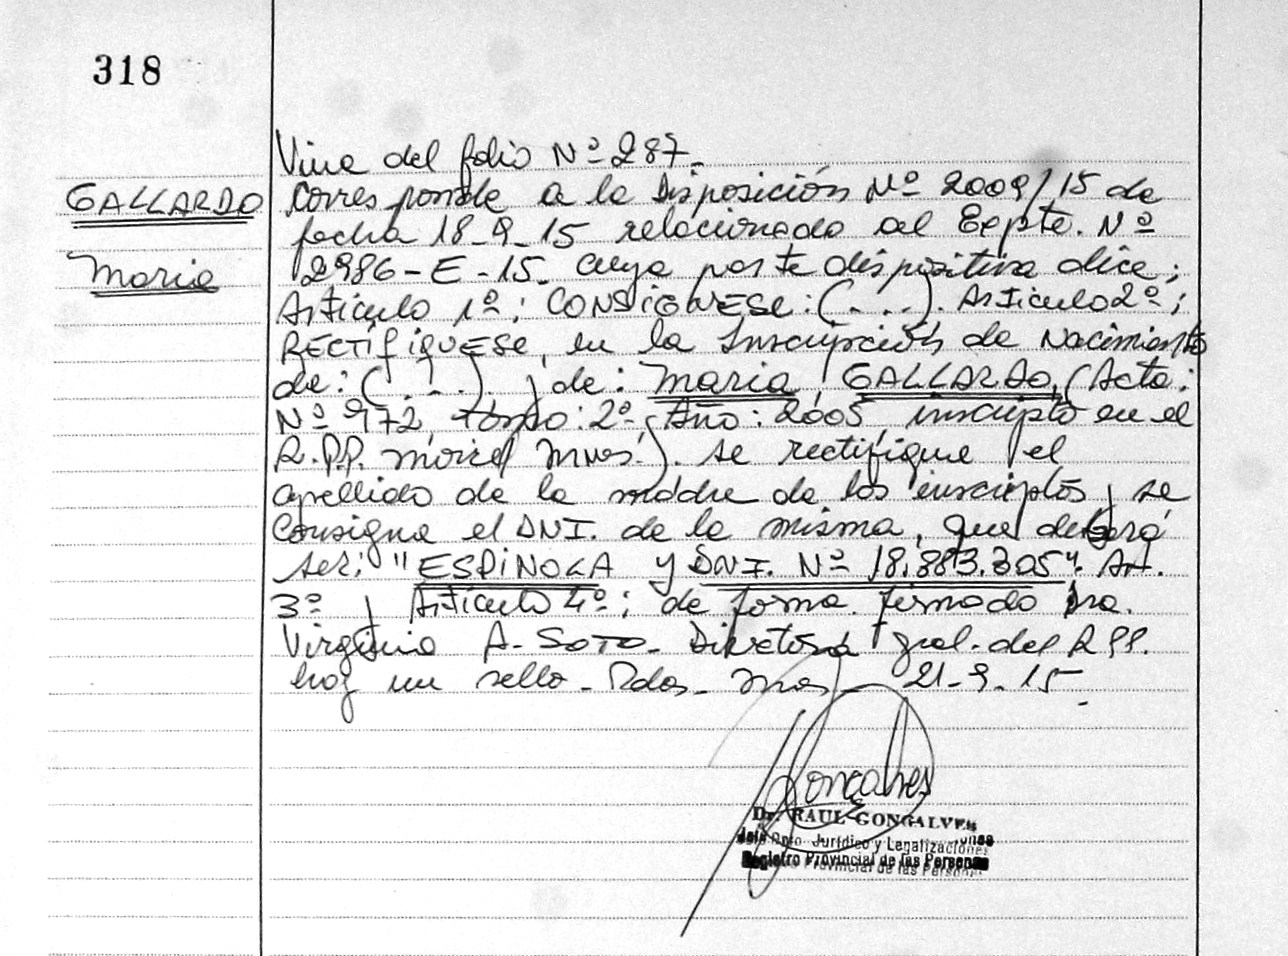 318
Viene del folio Nº 287.
GALLARDO
Maria
Corresponde a la Disposición Nº 2009/15 de
fecha 18-9-15 relacionado al Expte. Nº
2986-E-15. cuya parte dispositiva dice;
Artículo 1º; CONSIGNESE: (....). Artículo 2º;
RECTIFIQUESE, en la Inscripción de Nacimiento
de: (...) , de: Maria GALLARDO, (Acta:
Nº 972, Tomo: 2º, Año: 2005, inscripto en el
R.P.P. Mnes.). se rectifique el
apellido de la madre de los inscriptos, se
consigna el DNI. de la misma, que deberá
ser; "ESPINOLA y DNI. Nº 18.883.305". Art.
3º, Artículo 4º; de forma. firmado Dra.
Virginia A. SOTO. Directora gral. del R.P.P.
hay un sello. Pdas. Mnes. 21-9-15.
Goncalves
Dr. RAUL GONCALVES
Jefe Dpto Jurídico y Legalizaciones
Registro Provincial de las Personas